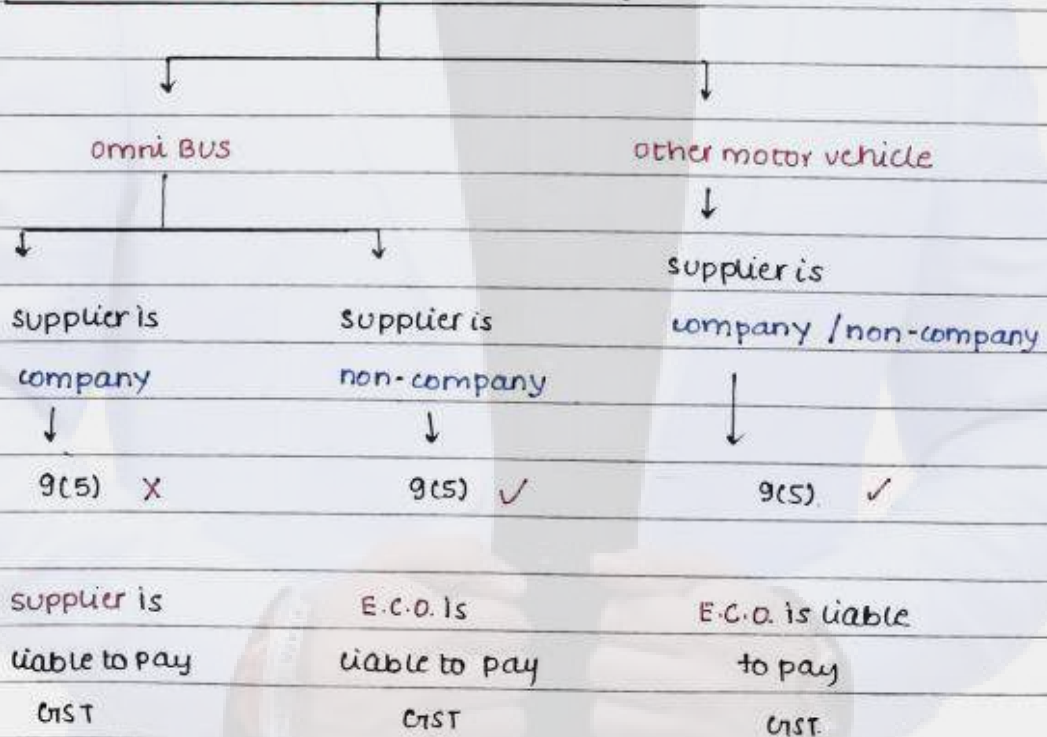 omni BUS
other motor vehicle
supplier is
company / non-company
supplier is
company
supplier is
non-company
9(5) X
9(5) ✓
9(5). ✓
supplier is
liable to pay
GST
E.C.O. is
liable to pay
GST
E.C.O. is liable
to pay
GST.